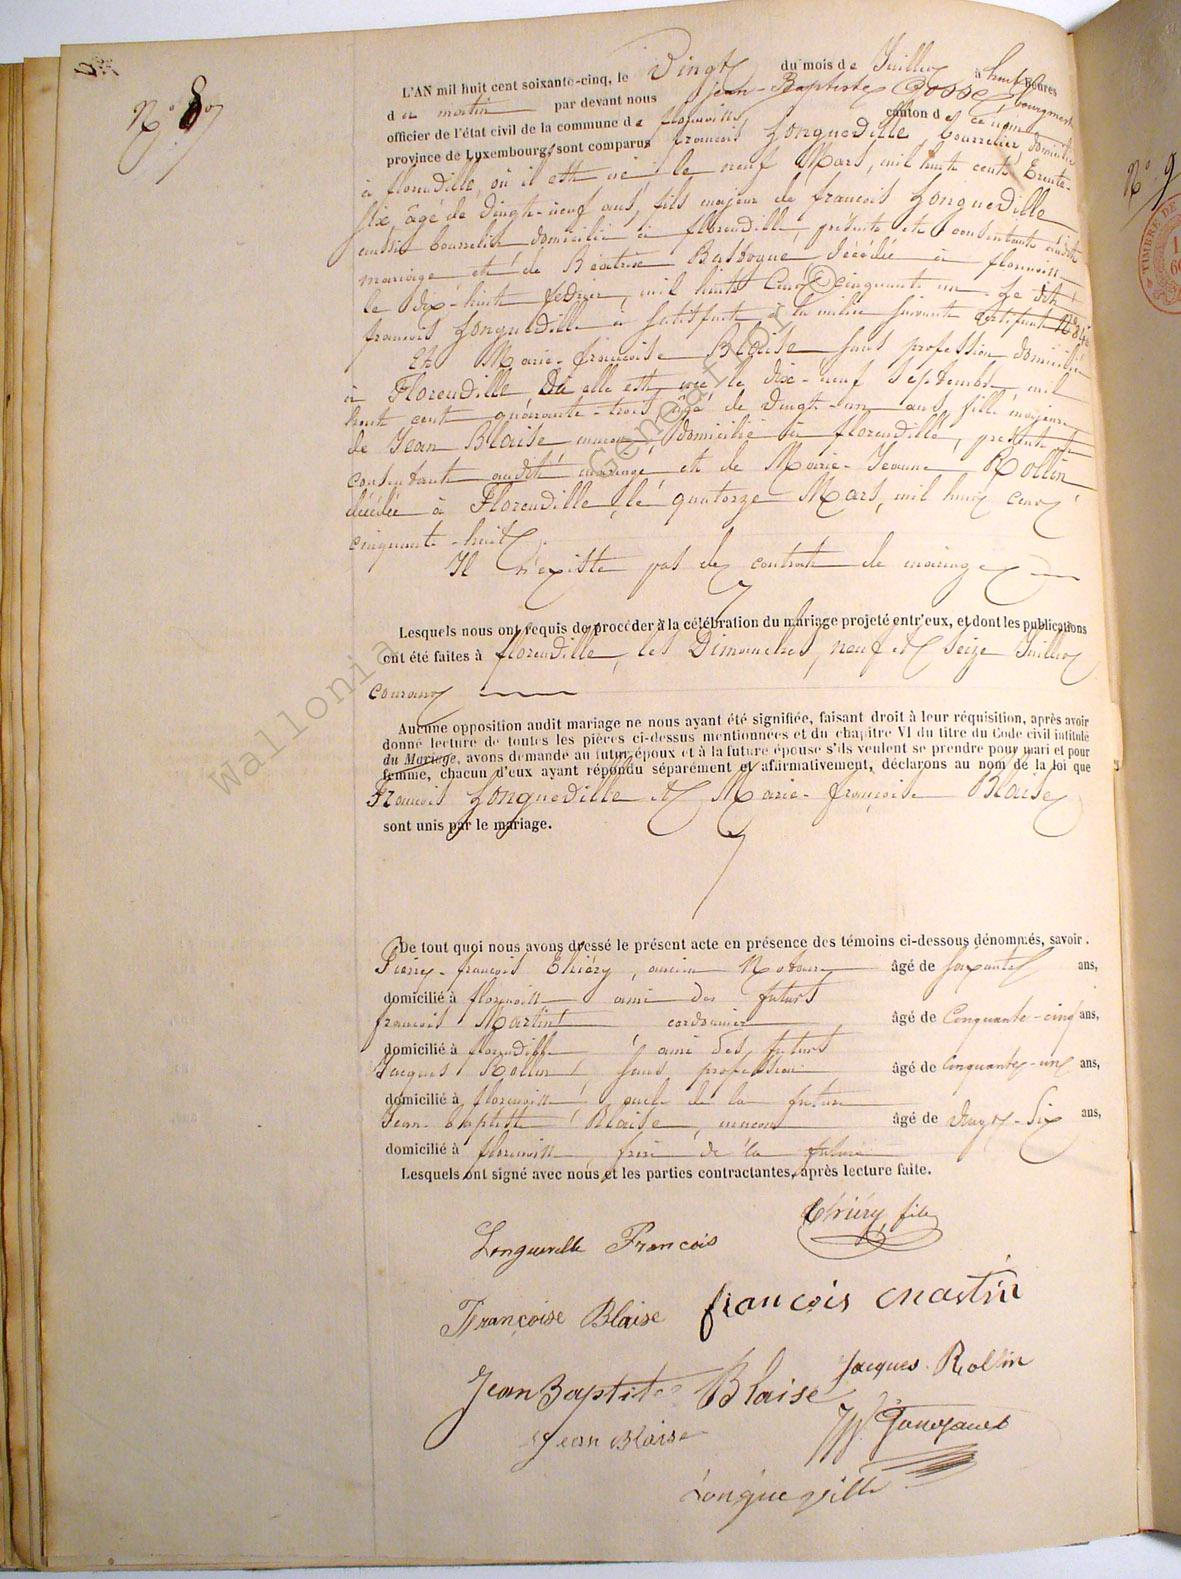 N° 8
L'AN mil huit cent soixante-cinq, le Vingt du mois de Juillet à huit heures
du matin par devant nous Jean-Baptiste bourgmestre
officier de l'état civil de la commune de florenville canton de ce nom
province de Luxembourg, sont comparus françois Longueville, bourrelier, domicilié
à florenville, où il est né le neuf Mars, mil huit cent trente-
six âgé de vingt-neuf ans, fils majeur de françois Longueville
aussi bourrelier domicilié à florenville, présent et consentant audit
mariage et de Béatrice décédée à florenville
le dix-huit fevrier, mil huit cent cinquante un. Le dit
françois Longueville a satisfait à la milice suivant certificat N°
Et Marie-françoise Blaise, sans profession, domiciliée
à Florenville, où elle est née le dix-neuf Septembre mil
huit cent quarante-trois, âgée de vingt-un ans fille majeure
de Jean Blaise domicilié à florenville, présent et
consentant audit mariage et de Marie-Jeanne Rollin
décédée à Florenville, le quatorze Mars, mil huit cent
cinquante-huit.
Il n'existe pas de contrat de mariage
Lesquels nous ont requis de procéder à la célébration du mariage projeté entr'eux, et dont les publications
ont été faites à florenville, les Dimanches, neuf et Seize Juillet
courant
Aucune opposition audit mariage ne nous ayant été signifiée, faisant droit à leur réquisition, après avoir
donné lecture de toutes les pièces ci-dessus mentionnées et du chapitre VI du titre du Code civil intitulé
du Mariage, avons demandé au futur époux et à la future épouse s'ils veulent se prendre pour mari et pour
femme, chacun d'eux ayant répondu séparément et affirmativement, déclarons au nom de la loi que
François Longueville et Marie-françoise Blaise
sont unis par le mariage.
De tout quoi nous avons dressé le présent acte en présence des témoins ci-dessous dénommés, savoir.
Pierre-françois Thiéry, ancien Notaire âgé de soixante ans,
domicilié à florenville ami des futurs
françois Martin cordonnier âgé de Cinquante-cinq ans,
domicilié à florenville, ami des futurs
Jacques Rollin, sans profession âgé de cinquante-un ans,
domicilié à florenville, oncle de la future
Jean-baptiste Blaise, âgé de vingt-Six ans,
domicilié à florenville frère de la future
Lesquels ont signé avec nous et les parties contractantes, après lecture faite.
Thiéry, fils
Longueville François
Françoise Blaise françois Martin
Jacques Rollin
Jean Baptiste Blaise
Jean Blaise
Longueville
N° 9
TIMBRE DE
© Geneaflor Wallonia